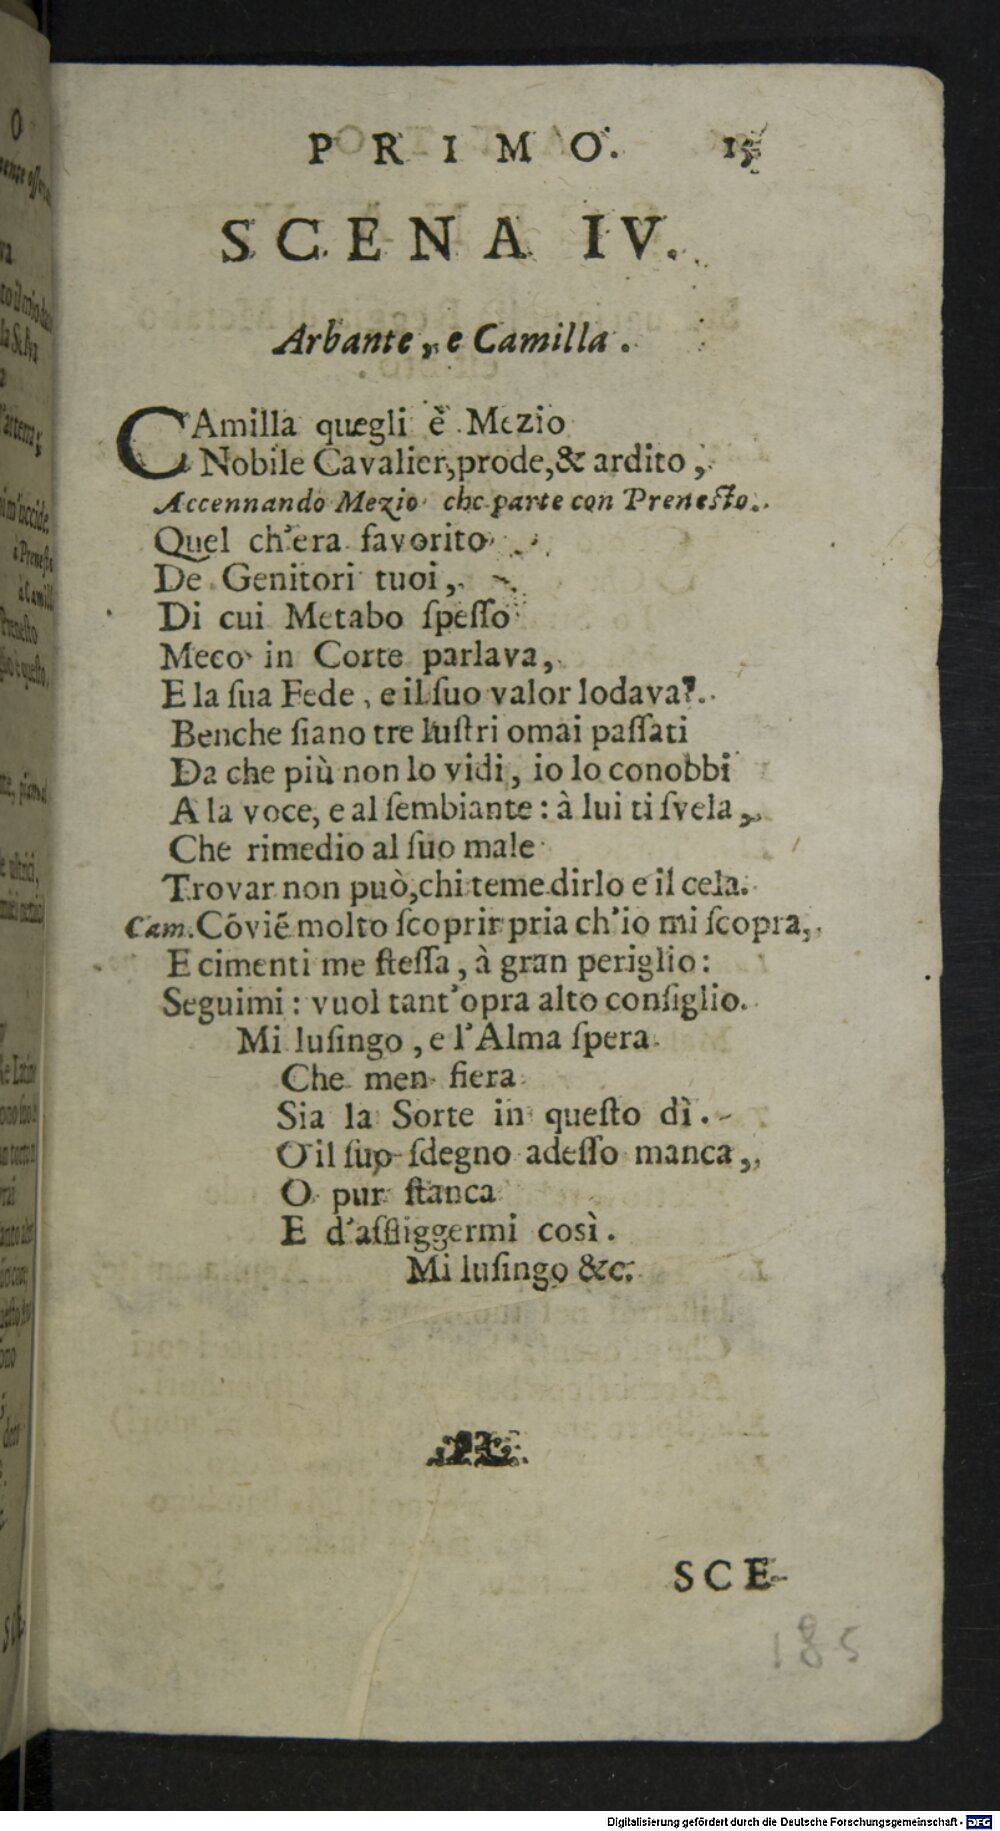 PRIMO. 15
SCENA IV.
Arbante, e Camilla.
CAmilla quegli è Mezio
Nobile Cavalier, prode, & ardito,
Accennando Mezio che parte con Prenesto.
Quel ch'era favorito
De Genitori tuoi,
Di cui Metabo ſpeſſo
Meco in Corte parlava,
E la ſua Fede, e il ſuo valor lodava?
Benche ſiano tre luſtri omai paſſati
Da che più non lo vidi, io lo conobbi
A la voce, e al ſembiante: à lui ti ſvela,
Che rimedio al ſuo male
Trovar non può, chi teme dirlo e il cela.
Cam. Cõviẽ molto ſcoprir pria ch'io mi ſcopra,
E cimenti me ſteſſa, à gran periglio:
Seguimi: vuol tant'opra alto conſiglio.
Mi luſingo, e l'Alma ſpera
Che men fiera
Sia la Sorte in queſto dì.
O il ſuo ſdegno adeſſo manca,
O pur ſtanca
E d'affliggermi così.
Mi luſingo &c.
SCE-
185
Digitalisierung gefördert durch die Deutsche Forschungsgemeinschaft - DFG